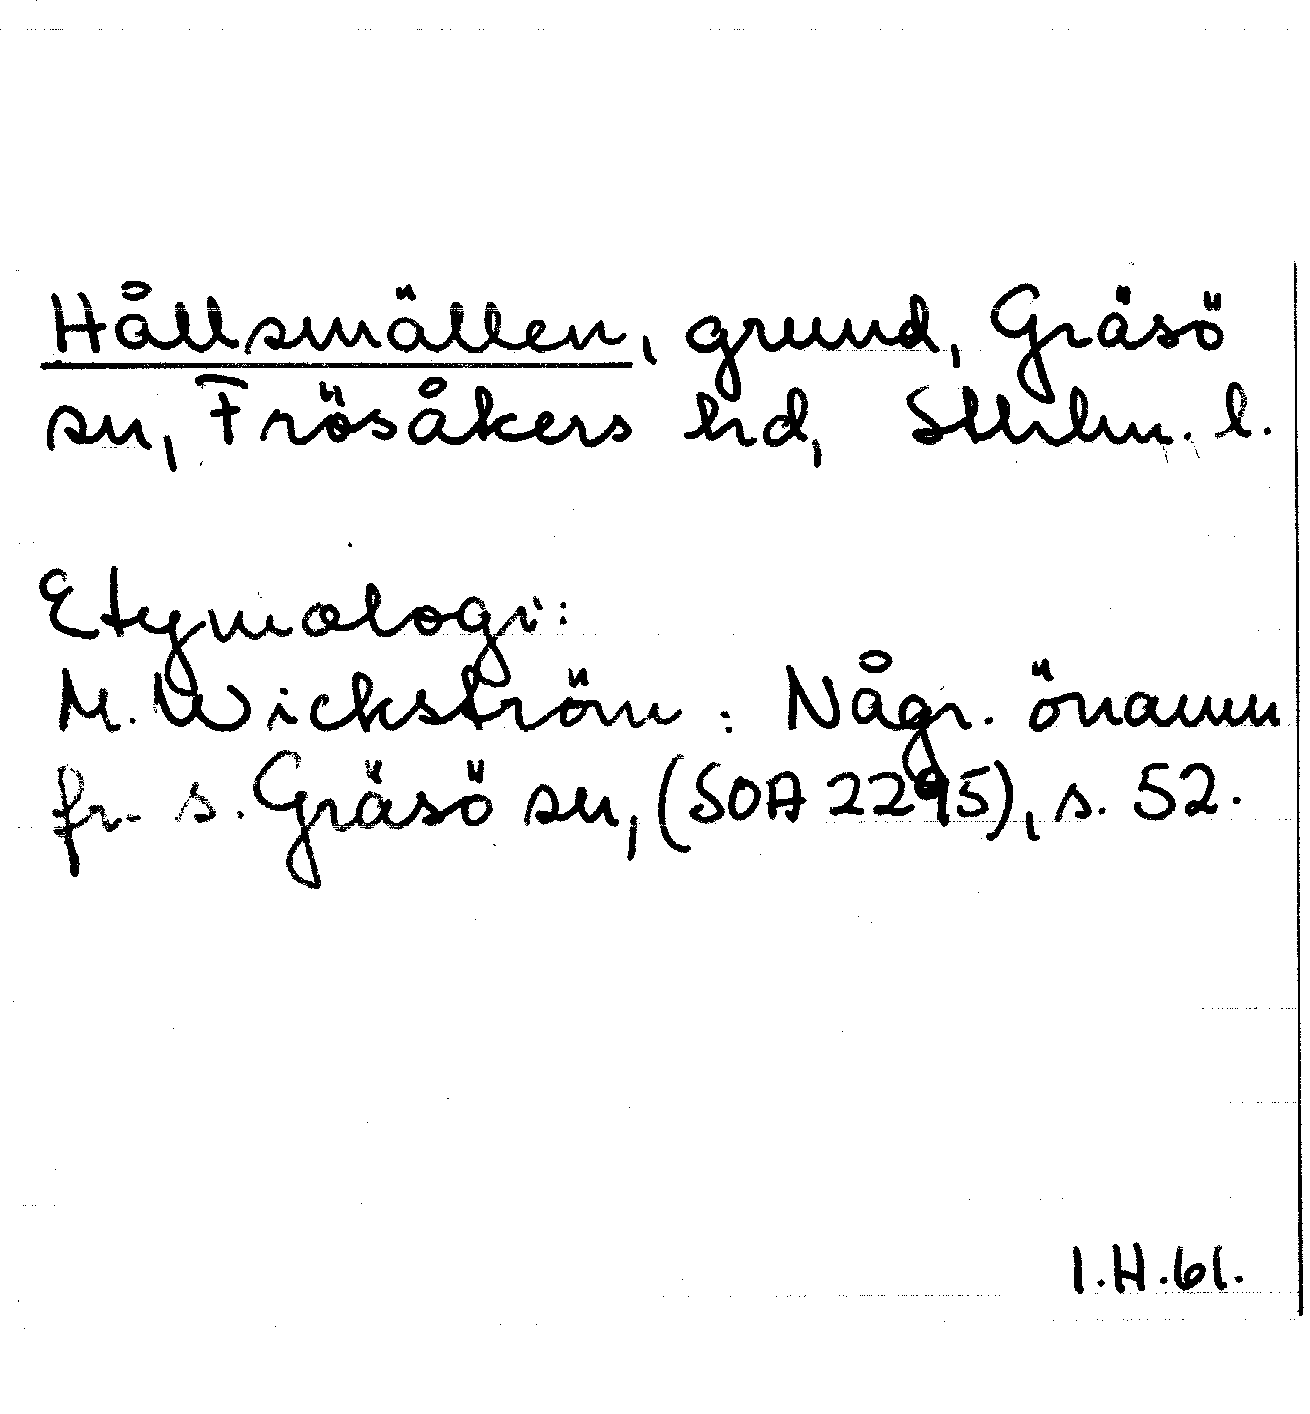 Hållsmällen, grund, Gräsö
sn, Frösåkers hd, Sthlm. l.
Etymologi:
M. Wickström: Någr. önamn
fr. s. Gräsö sn, (SOA 2295), s. 52.
I.H.61.